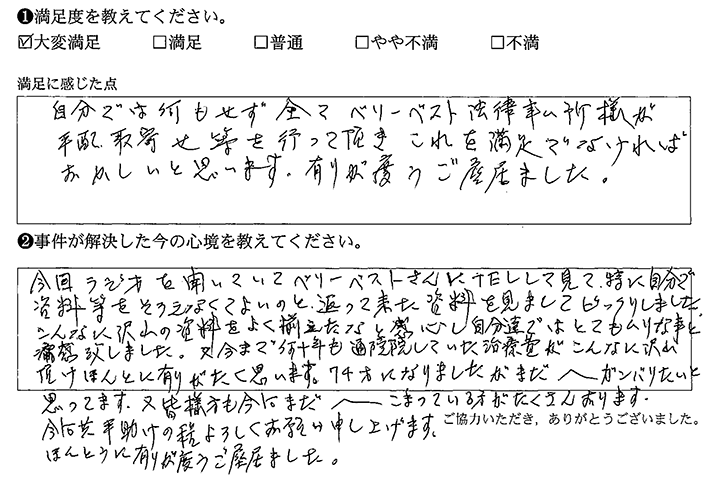 ❶満足度を教えてください。
☑大変満足 □満足 □普通 □やや不満 □不満
満足に感じた点
自分では何もせず全てベリーベスト法律事ム所様が
手配、取寄せ等を行って頂きこれを満足でなければ
おかしいと思います。有りが度うご座居ました。
❷事件が解決した今の心境を教えてください。
今回ラジオを聞いていてベリーベストさんにTELして見て、特に自分で
資料等をそろえなくてよいのと、返って来た資料を見ましてびっくりしました、
こんなに沢山の資料をよく揃えたなと感心し自分達ではとてもムリな事と
痛感致しました。又今まで何十年も通院していた治療費がこんなに沢山
頂けほんとに有りがたく思います。74才になりましたがまだ〜ガンバりたいと
思ってます。又皆様方も今はまだ〜こまっている方がたくさんおります。
ご協力いただき，ありがとうございました。
今后共手助けの程よろしくお願い申し上げます。
ほんとうに有りが度うご座居ました。